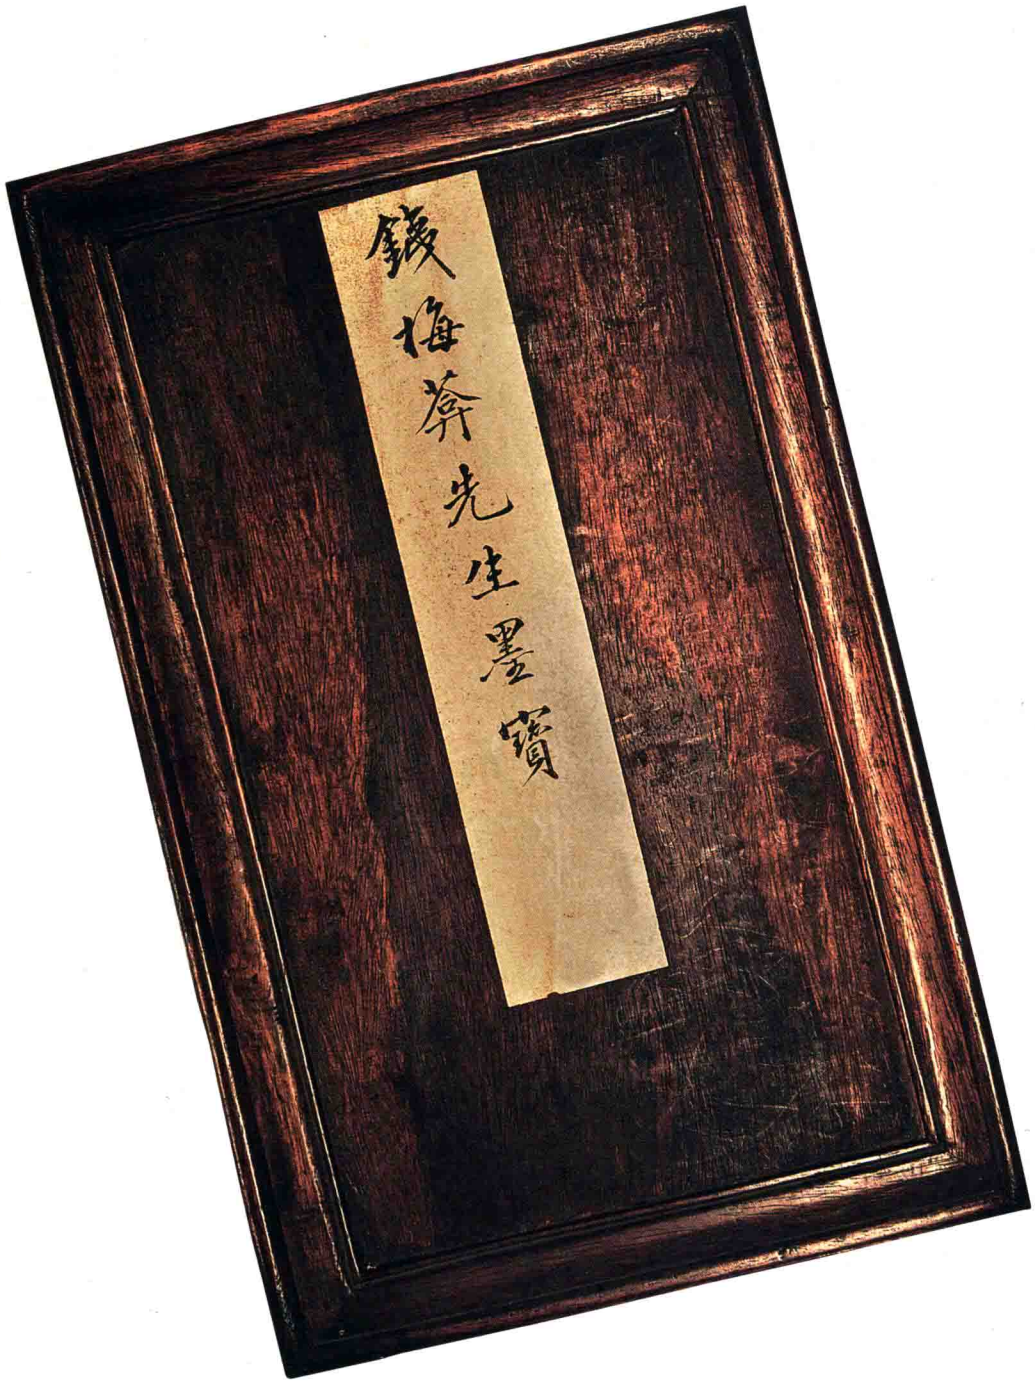 錢梅葊先生墨寶